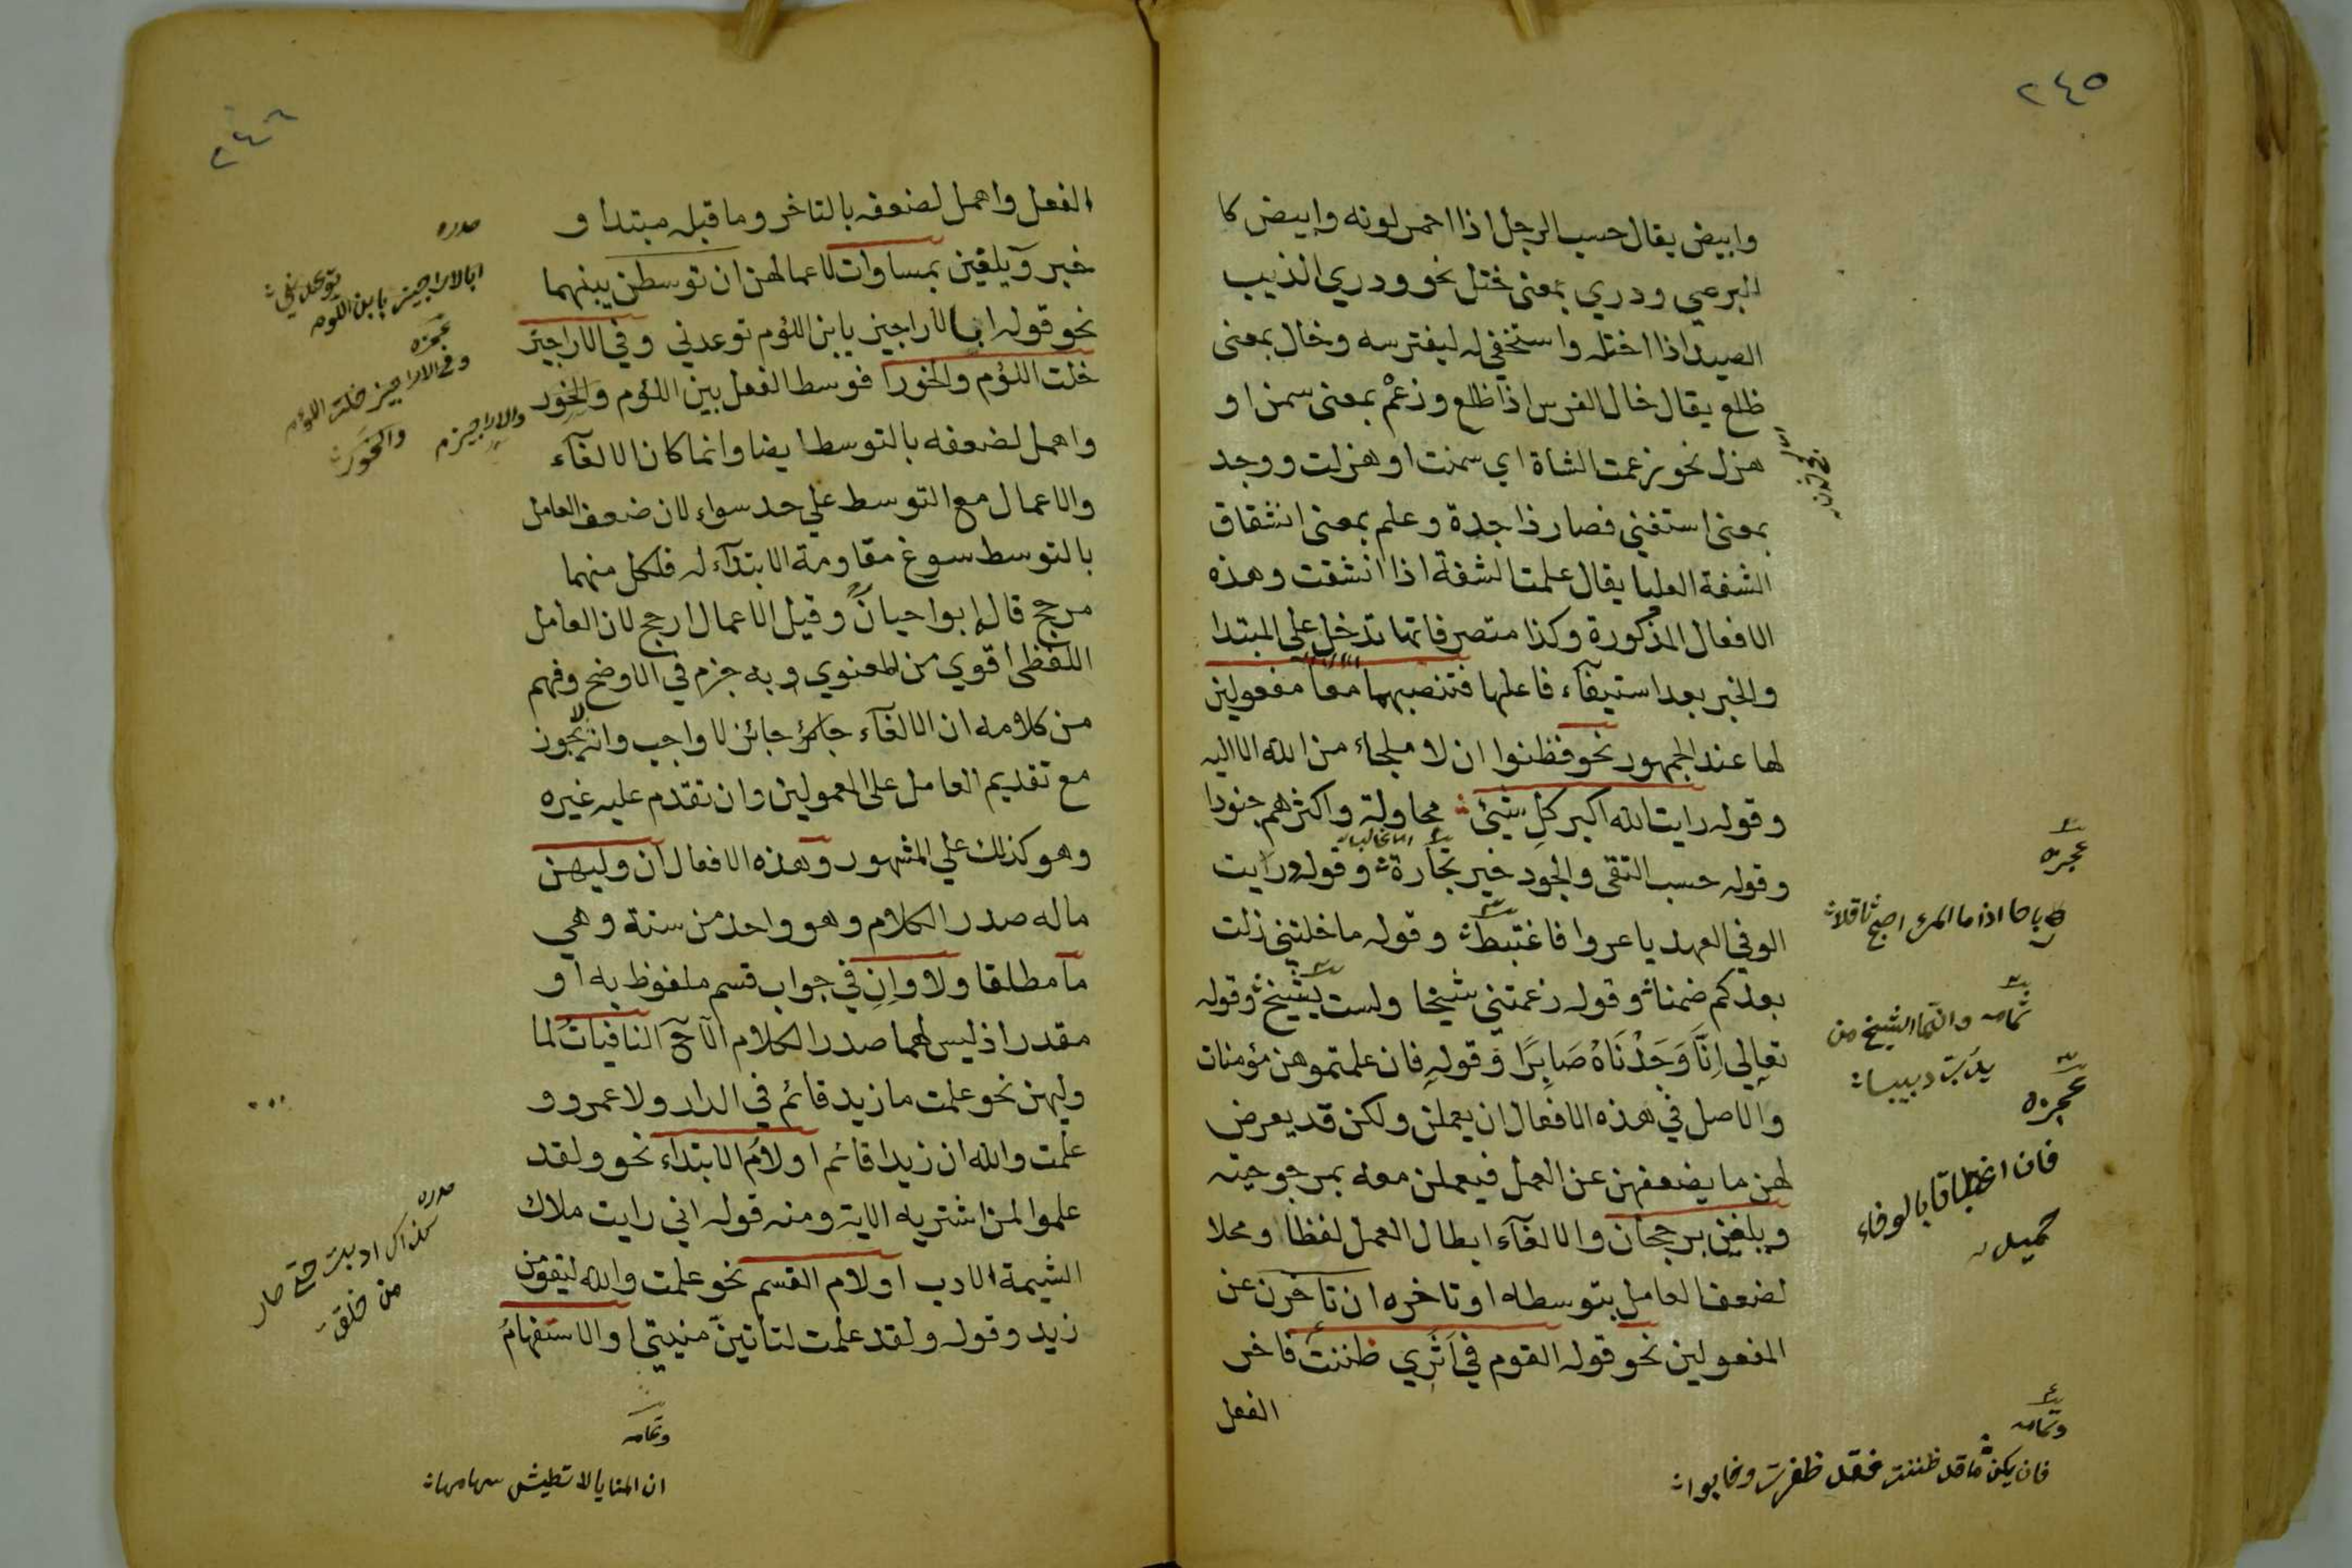 ٢٤٥
وابيض يقال حسب الرجل اذا احمر لونه وابيض كا
البرعي ودري بمعنى ختل نحو ودري الذيب
الصيد اذا اختله واستخفى له ليفترسه وخال بمعنى
ظلع يقال خال الفرس اذا ظلع وزعم بمعنى سمن او
هزل نحو زعمت الشاة اي سمنت او هزلت ووجد
بمعنى استغنى فصار ذا جدة وعلم بمعنى انشقاق
الشفة العليا يقال علمت الشفة اذا انشقت وهذه
الافعال المذكورة وكذا متصرفاتها تدخل على المبتدا
والخبر بعد استيفآء فاعلها فتنصبهما معا مفعولين
لها عند الجمهور نحو فظنوا ان لا ملجاء من الله الا اليه
وقوله رايت الله اكبر كل شيئ محاولة واكثرهم جنودا
وقوله حسب التقى والجود خير تجارة وقوله درايت
الوفي العهد يا عروا فاغتبط وقوله ما خلتني زلت
بعدكم ضمنا وقوله زعمتني شيخا ولست بشيخ وقوله
تعالى اِنَّا وَجَدْنَاهُ صَابِرًا وقوله فان علمتموهن مؤمنات
والاصل في هذه الافعال ان يعملن ولكن قد يعرض
لهن ما يضعفهن عن العمل فيعملن معه بمرجوحية
ويلغين برجحان والالغآء ابطال العمل لفظا ومحلا
لضعف العامل بتوسطه او تاخره ان تأخرن عن
المفعولين نحو قوله القوم في اَثَرِي ظننتُ فاخر
الفعل
عجزه
رباحا اذا ما المرء اصبح ثاقلا
تمامه وانما الشيخ من
يدب دبيبا
عجزه
فان اغتباطا بالوفاء
حميد
وتمامه
فان يكن ما قد ظننت فقد ظفرت وخابوا
٢٤٦
الفعل واهمل لضعفه بالتاخر وما قبله مبتدا و
خبر ويلغين بمساوات لاعمالهن ان توسطن بينهما
نحو قوله ابا لاراجيز يابن اللؤم توعدني وفي الاراجيز
خلت اللؤم والخورا فوسط الفعل بين اللؤم والخور
واهمل لضعفه بالتوسط ايضا وانما كان الالغآء
والاعمال مع التوسط علي حد سواء لان ضعف العامل
بالتوسط سوغ مقاومة الابتدآء له فلكل منهما
مرجح قال ابوا حيان وقيل الاعمال ارجح لان العامل
اللفظى اقوي من المعنوي وبه جزم في الاوضح وفهم
من كلامه ان الالغآء جائز لا واجب وانه لا يجوز
مع تقديم العامل على المعمولين وان تقدم عليه غيره
وهو كذلك علي المشهور وهذه الافعال ان وليهن
ما له صدر الكلام وهو واحد من ستة وهي
ما مطلقا ولا وان في جواب قسم ملفوظ به او
مقدر اذ ليس لهما صدر الكلام الا ح النافيات لما
وليهن نحو علمت ما زيد قائم في الدار ولا عمرو و
علمت والله ان زيدا قائم او لام الابتداء نحو ولقد
علموا لمن اشتريه الاية ومنه قوله اني رايت ملاك
الشيمة الادب او لام القسم نحو علمت والله ليقومن
زيد وقوله ولقد علمت لتاتين منيتي او الاستفهام
صدره
ابا لاراجيز يا بن اللوم
توعدني
عجزه
وفي الاراجيز خلت اللؤم
والخور
والاراجيز م
صدره
كذاك ادبت حتى صار
من خلقي
وتمامه
ان المنايا لا تطيش سهامها